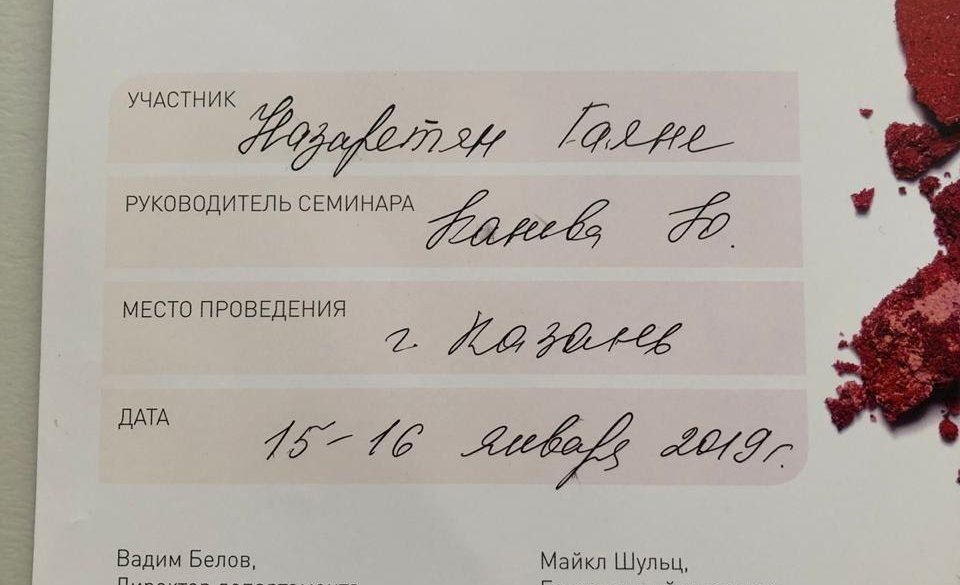 УЧАСТНИК Назаретян Гаяне
РУКОВОДИТЕЛЬ СЕМИНАРА Канева Ю.
МЕСТО ПРОВЕДЕНИЯ г. Казань
ДАТА 15-16 января 2019г.
Вадим Белов, Майкл Шульц,
Директор департамента